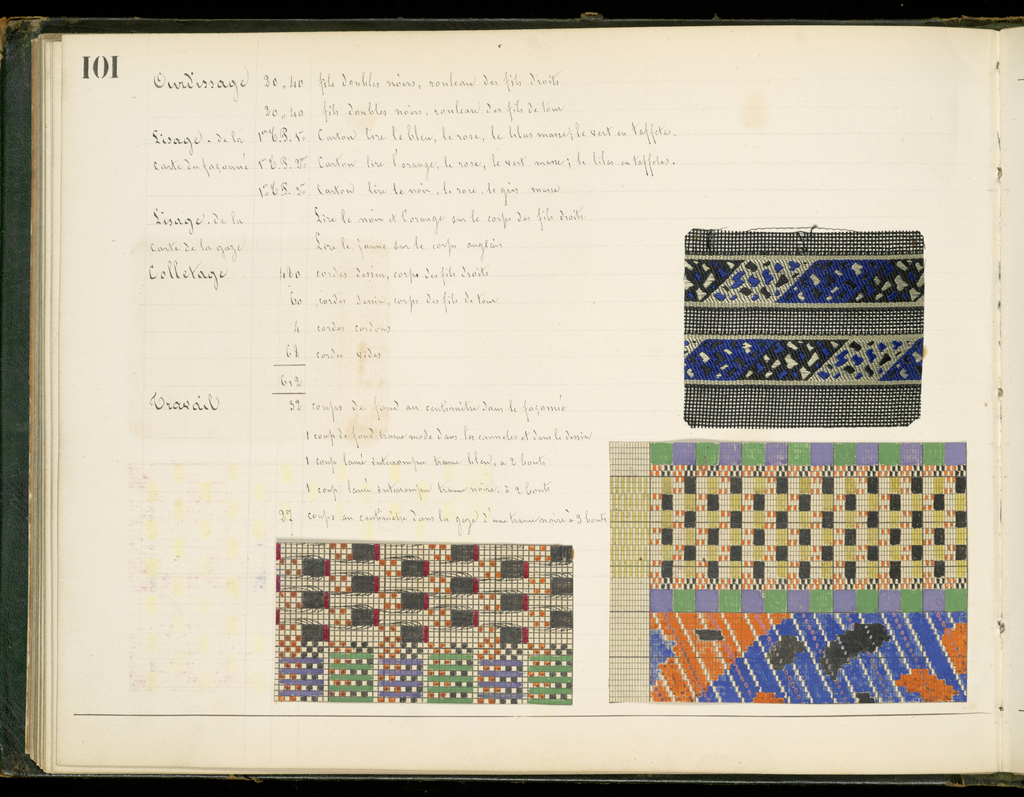 101
Ourdissage 20,,40 fils doubles noirs, rouleau des fils droits
20,,40 fils doubles noirs, rouleau des fils de tour
Lisage de la Carton lire le bleu, le rose, le lilas masse; le vert en taffetas.
carte du façonné Carton lire l'orange, le rose, le vert masse; le lilas en taffetas.
Carton lire le noir, le rose, le gris masse
Lisage de la Lire le noir et l'orange sur le corps des fils droits
carte de la gaze Lire le jaune sur le corps anglais
Colletage cordes dessin, corps des fils droits
60 cordes dessin, corps des fils de tour
4 cordes cordons
68 cordes vides
612
Travail 32 coups de fond au centimètre dans le façonné
1 coup de fond trame mode dans les cannelés et dans le dessin
1 coup lancé interrompu trame bleu, à 2 bouts
1 coup lancé interrompu trame noire, à 2 bouts
27 coups au centimètre dans la gaze d'une trame noire à 3 bouts